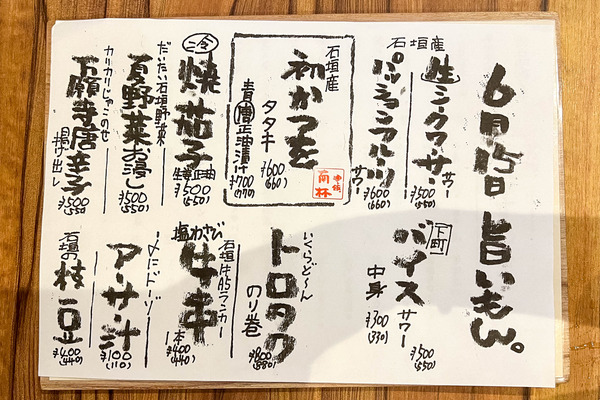 6月15日 旨いもん。
石垣産
生シークワーサーサワー
¥500
(550)
パッションフルーツサワー
¥600
(660)
下町
バイスサワー
¥500
(550)
中身
¥300
(330)
石垣産
初かつを
タタキ
¥600
(660)
青唐正油漬け
¥700
(770)
いくらど〜ん
トロタク
のり巻
¥800
(880)
冷
焼茄子
生姜正油
¥500
(550)
だいたい石垣野菜
夏野菜お浸し
¥500
(550)
カリカリじゃこのせ
万願寺唐辛子
揚げ出し
¥500
(550)
塩わさび
牛串
石垣牛A5ランク
1本
¥400
(440)
〆にドーゾ
アーサ汁
¥100
(110)
石垣の
枝豆
¥400
(440)